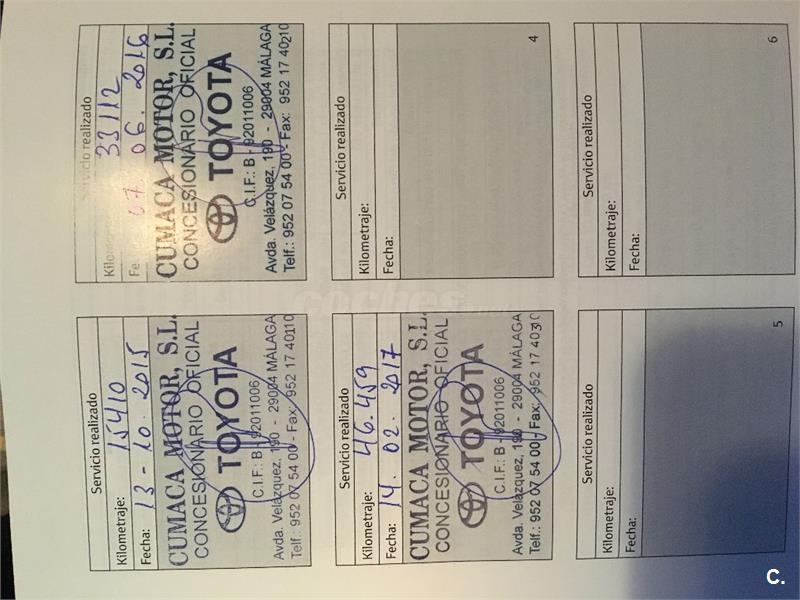 Servicio realizado
Kilometraje: 15410
Fecha: 13-10.2015
CUMACA MOTOR, S.L.
CONCESIONARIO OFICIAL
TOYOTA
C.I.F.: B - 92011006
Avda. Velázquez, 190 - 29004 MÁLAGA
Telf.: 952 07 54 00 - Fax: 952 17 40110
Servicio realizado
33112
Fe 07. 06. 2016
CUMACA MOTOR, S.L.
CONCESIONARIO OFICIAL
TOYOTA
C.I.F.: B - 92011006
Avda. Velázquez, 190 - 29004 MÁLAGA
Telf.: 952 07 54 00 - Fax: 952 17 40210
Servicio realizado
Kilometraje: 46.459
Fecha: 14. 02. 2017
CUMACA MOTOR, S.L.
CONCESIONARIO OFICIAL
TOYOTA
C.I.F.: B - 92011006
Avda. Velázquez, 190 - 29004 MÁLAGA
Telf.: 952 07 54 00 - Fax: 952 17 40
Servicio realizado
Kilometraje:
Fecha:
4
Servicio realizado
Kilometraje:
Fecha:
5
Servicio realizado
Kilometraje:
Fecha:
6
coches
C.